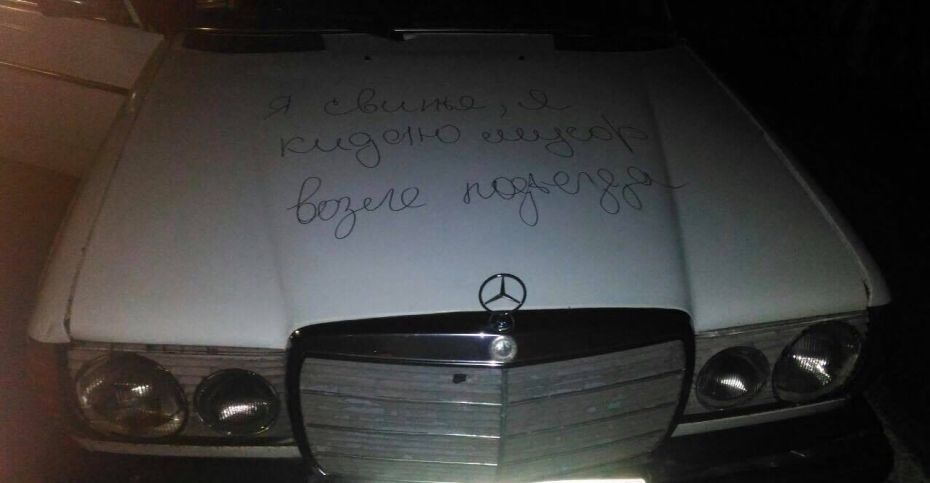 я свинья, я
кидаю мусор
возле подъезда